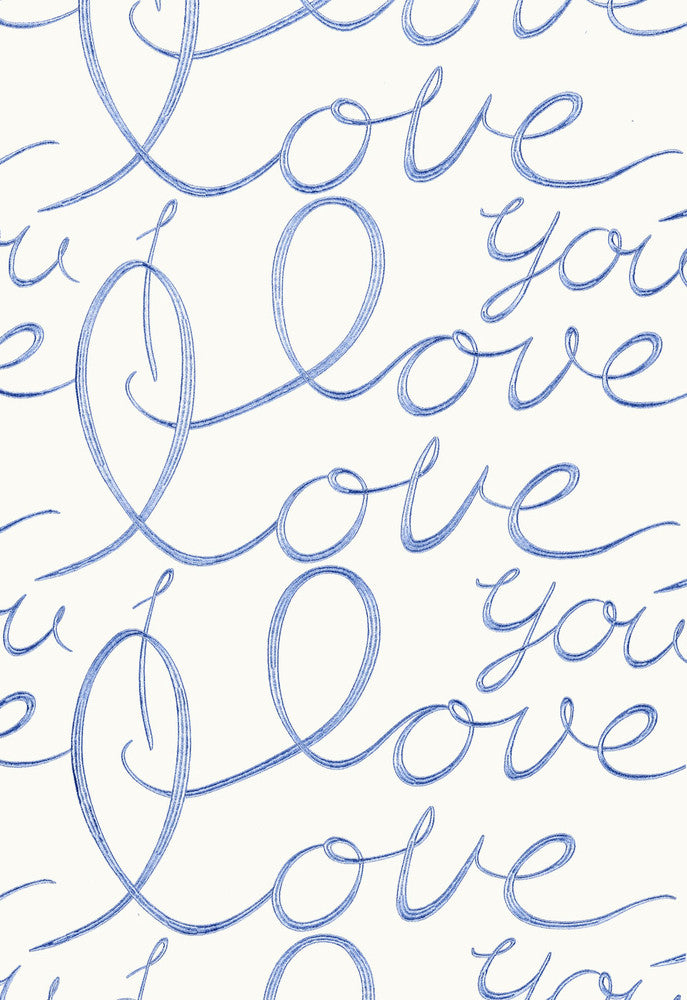 love
you
I love
love
you
I love
love
you